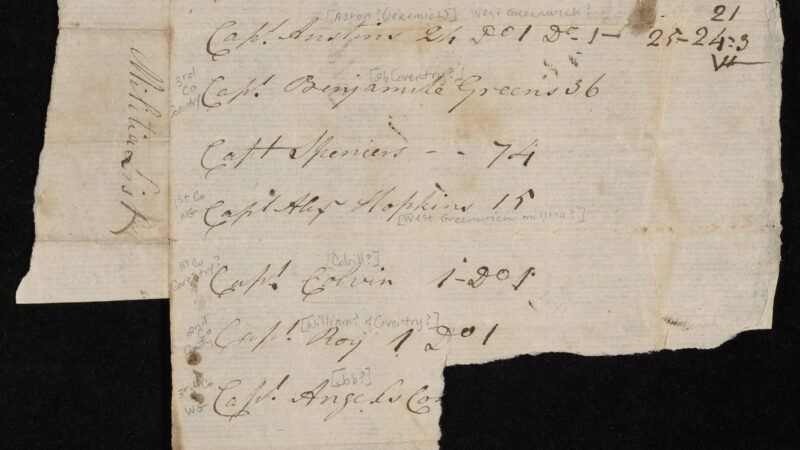 [Aston? (Jeremiah)] West Greenwich?
21
Capt. Austins 24 Do 1 Do 1- 25-24=3
3rd Co Coventry
[of Coventry?]
Capt. Benjamile Greens 36
Capt Spencers - - 74
1st Co WG
Capt Alex Hopkins 15
[West Greenwich militia?]
1st Co Coventry?
[Colvill?]
Capt. Colvin 1 - Do 1
2nd Co
[William? of Coventry?]
Capt. Roy 1 Do 1
3rd Co WG
[Job?]
Capt. Angels Com
Militia List